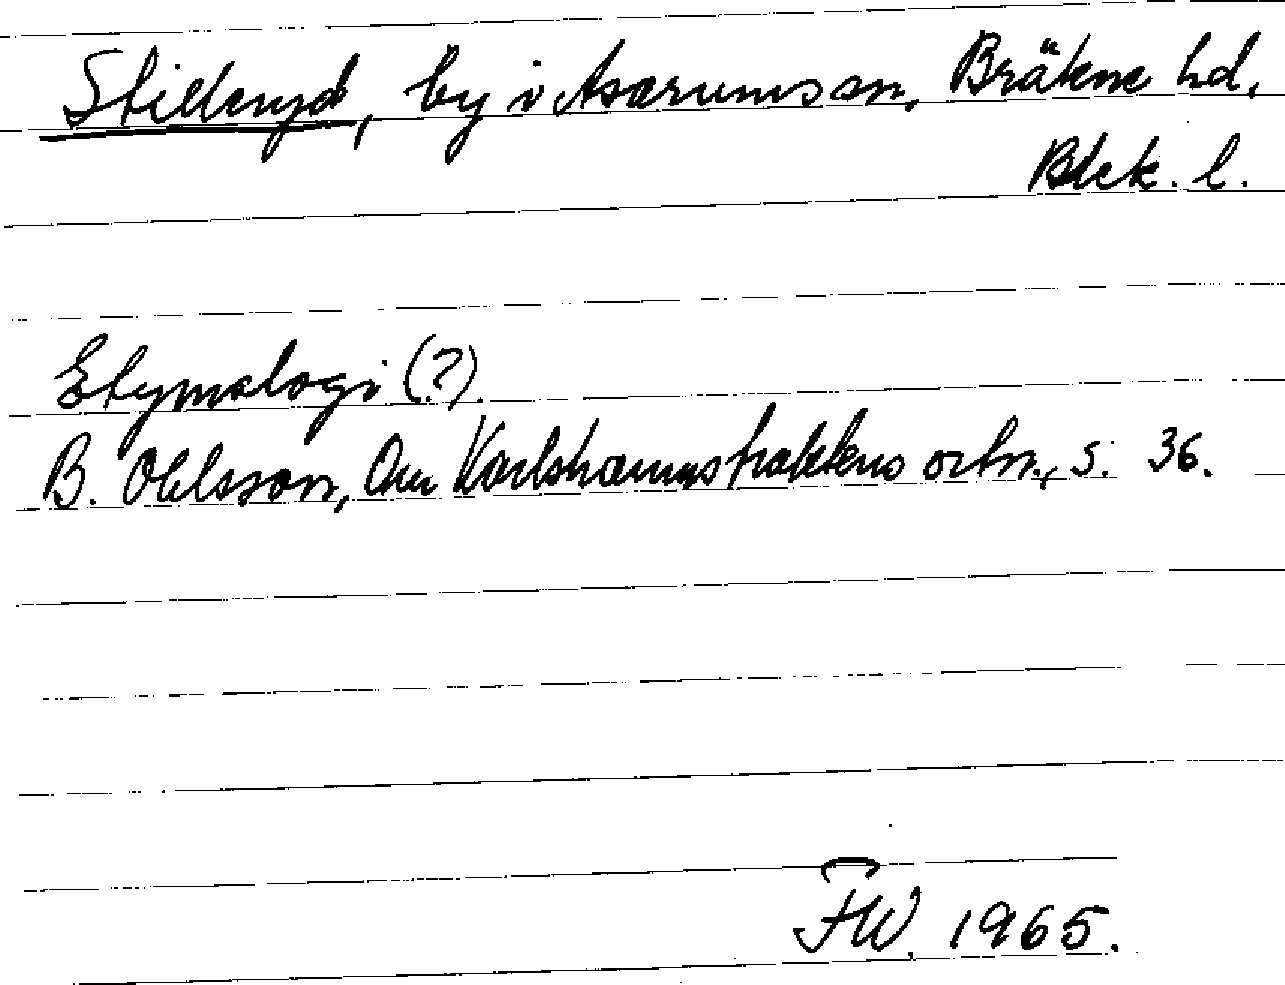 Stilleryd, by i Asarums sn, Bräkne hd,
Blek. l.
Etymologi (?).
B. Ohlsson, Om Karlshamnstraktens ortn., s. 36.
FW. 1965.